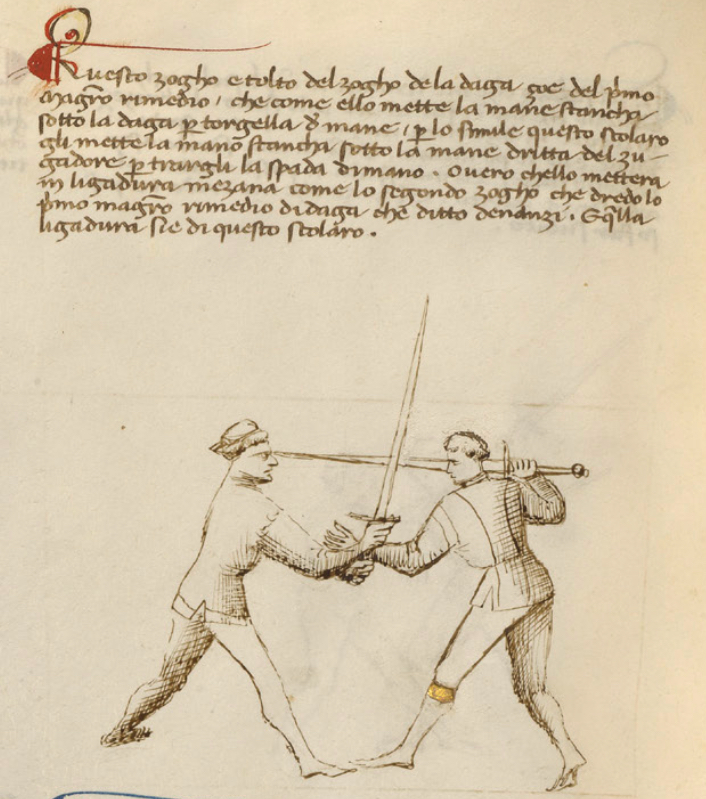 Questo zogho e tolto del zogho de la daga zoe del p̄mo
magr̄o rimedio / che come ello mette la mane stancha
sotto la daga p torgella d mane / p lo simile questo scolaro
gli mette la mano stancha sotto la mane dritta del zu-
gadore p trargli la spada di mano. Overo chello mettera
in ligadura mezana come lo segondo zogho che dredo lo
p̄mo magr̄o rimedio di daga che ditto denanzi. E q̄lla
ligadura sie di questo scolaro.